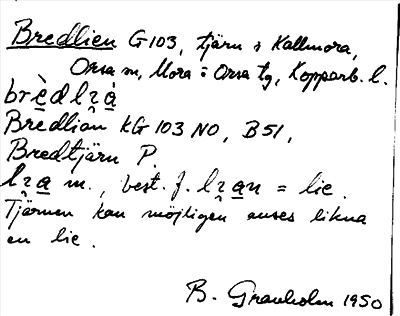 Bredlien G 103, tjärn s Kallmora,
Orsa sn, Mora o Orsa tg, Kopparb. l.
brèdlꞎà
Bredlian KG 103 NO, B 51,
Bredtjärn P.
m., best. f. = lie.
Tjärnen kan möjligen anses likna
en lie.
B. Granholm 1950